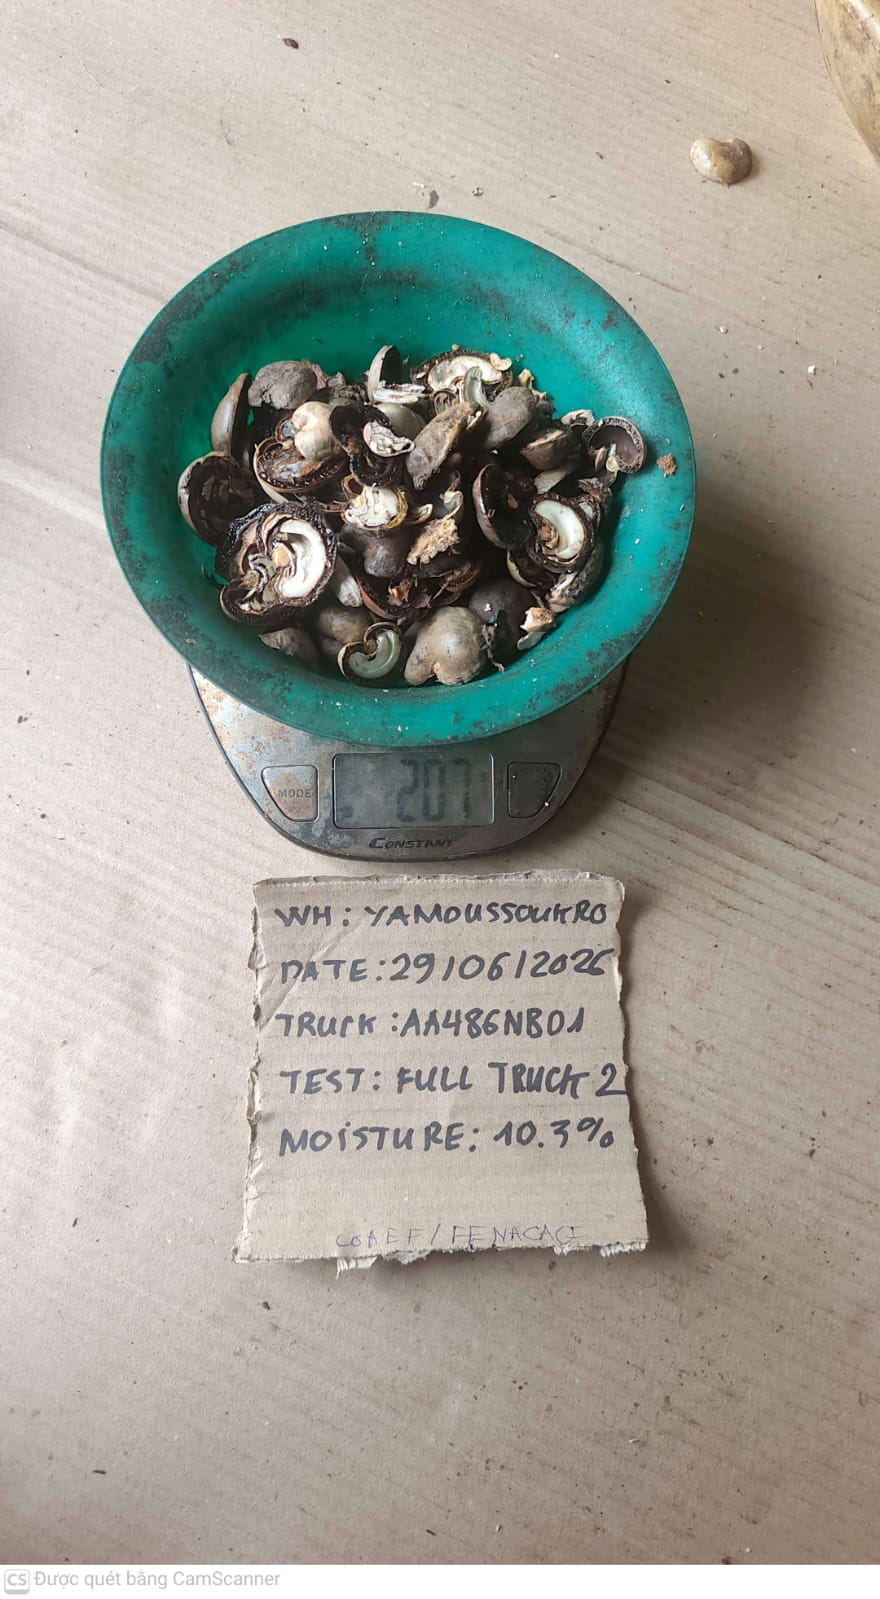 207
MODE
CONSTANT
WH: YAMOUSSOUKRO
DATE: 29/06/2026
TRUCK: AA486NB01
TEST: FULL TRUCK 2
MOISTURE: 10.3%
COAEF/FENACACI
CS Được quét bằng CamScanner